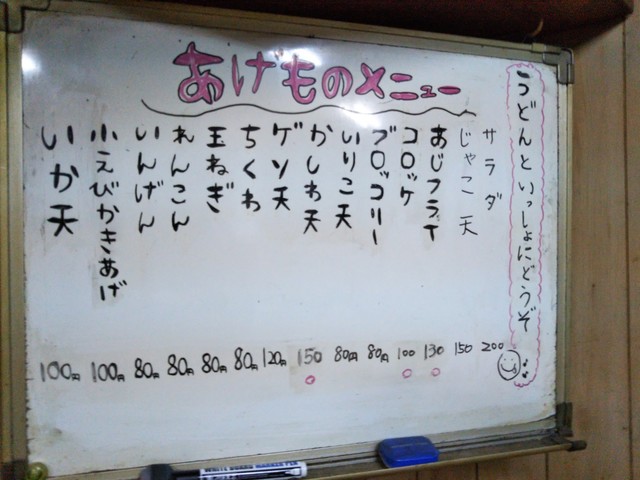 あげものメニュー
うどんといっしょにどうぞ
サラダ 200
じゃこ天 150
あじフライ 130
コロッケ 100
ブロッコリー 80円
いりこ天 80円
かしわ天 150
ゲソ天 120円
ちくわ 80円
玉ねぎ 80円
れんこん 80円
いんげん 80円
小えびかきあげ 100円
いか天 100円
WHITE BOARD MARKER PEN